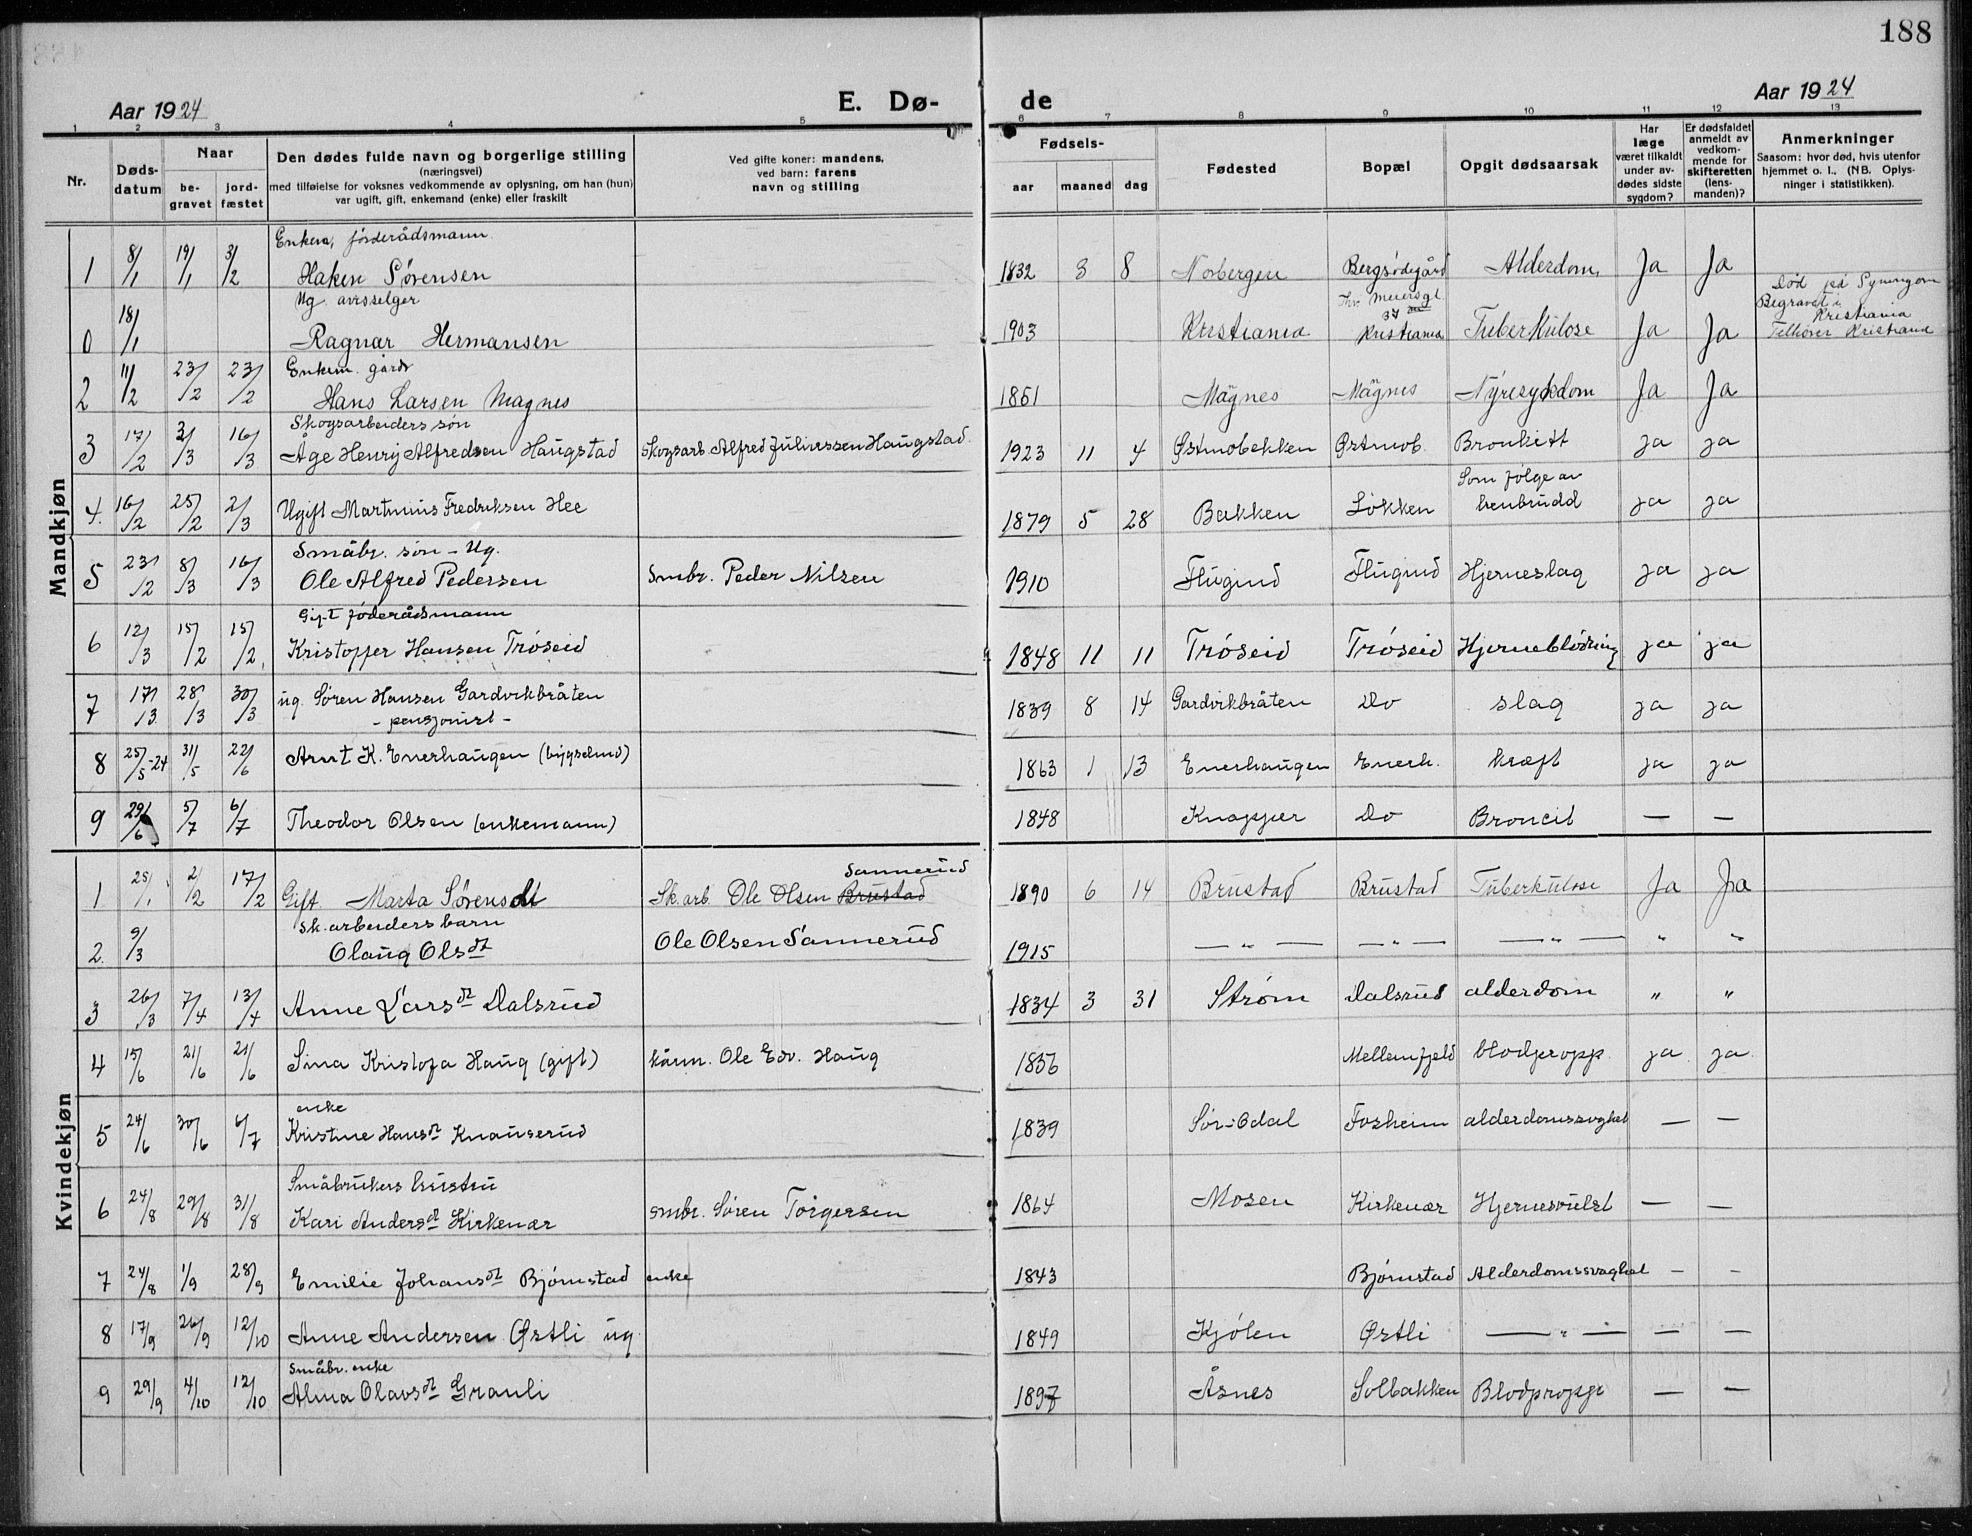 188
Aar 1924 E. Dø- de Aar 1924
1 2 3 4 5 6 7 8 9 10 11 12 13
Nr. Døds-datum Naar be-gravet jord-fæstet Den dødes fulde navn og borgerlige stilling (næringsvei) med tilføielse for voksnes vedkommende av oplysning, om han (hun) var ugift, gift, enkemand (enke) eller fraskilt Ved gifte koner: mandens, ved barn: farens navn og stilling Fødsels- aar maaned dag Fødested Bopæl Opgit dødsaarsak Har læge været tilkaldt under av-dødes sidste sygdom? Er dødsfaldet anmeldt av vedkom-mende for skifteretten (lens-manden)? Anmerkninger Saasom: hvor død, hvis utenfor hjemmet o. l., (NB. Oplys-ninger i statistikken).
Mandkjøn
Enkem, föderådsmann
1 8/1 19/1 3/2 Haken Sørensen 1832 3 8 Norbergen Bergsödegård Alderdom Ja Ja
Ug. avisselger Thv. Meiersgt. 37 Död på
Begravet i Kristiania
0 18/1 Ragnar Hermansen 1903 Kristiania Kristiania Tuberkulose Ja Ja Tilhører Kristiania
Enkem. gårdb
2 11/2 23/2 23/2 Hans Larsen Magnes 1851 Magnes Magnes Nyresykdom Ja Ja
Skogsarbeiders søn
3 17/2 2/3 16/3 Åge Henry Alfredsen Haugstad Skogsarb. Alfred Juliussen Haugstad 1923 11 4 Østmobekken Østmob. Bronkitt ja ja
Som følge av
4. 16/2 25/2 2/3 Ugift Martinius Fredriksen Hee 1879 5 28 Bakken Løkken benbrudd ja ja
Småbr. søn - Ug.
5 23/2 8/3 16/3 Ole Alfred Pedersen Smbr. Peder Nilsen 1910 Flugind Flugind Hjerneslag ja ja
Gift föderådsmann
6 12/3 15/2 15/2 Kristoffer Hansen Tröseid 1848 11 11 Tröseid Tröseid Hjerneblödning ja ja
7 17/3 28/3 30/3 ug. Søren Hansen Gardvikbråten 1839 8 14 Gardvikbråten Do slag ja ja
- pensjonist -
8 25/5-24 31/5 22/6 Arnt K. Enerhaugen (bygselmd) 1863 1 13 Enerhaugen Enerh. kræft ja ja
9 29/6 5/7 6/7 Theodor Olsen (enkemann) 1848 Knapper Do Broncit — —
Kvindekjøn
Sannerud
1 25/1 2/2 17/2 Gift. Marta Sørensdt Sk.arb. Ole Olsen Brustad 1890 6 14 Brustad Brustad Tuberkulose Ja Ja
Sk.arbeiders barn
2. 9/3 Olaug Olsdt Ole Olsen Sannerud 1915 — " — — " — — " — " "
3 26/3 7/4 13/4 Anne Larsdt Dalsrud 1834 3 31 Strøm Dalsrud alderdom " "
4 15/6 21/6 21/6 Sina Kristofa Haug (gift) kårm. Ole Edv. Haug 1836 Mellemfjeld blodpropp ja ja
enke
5 24/6 30/6 6/7 Kristine Hansdt Knauserud 1839 Sør-Odal Fosheim alderdomssvaghet — —
Småbrukers hustru
6 24/8 29/8 31/8 Kari Andersdt Kirkenær smbr. Søren Torgersen 1864 Mosen Kirkenær Hjernesvulst — —
7 24/8 1/9 28/9 Emilie Johansdt Bjørnstad enke 1843 Bjørnstad Alderdomssvaghet — —
8 17/9 26/9 12/10 Anne Andersen Østli ug. 1849 Kjølen Østli — " — — —
Småbr. enke
9 29/9 4/10 12/10 Alma Olavsdt Granli 1897 Åsnes Solbakken Blodpropp — —